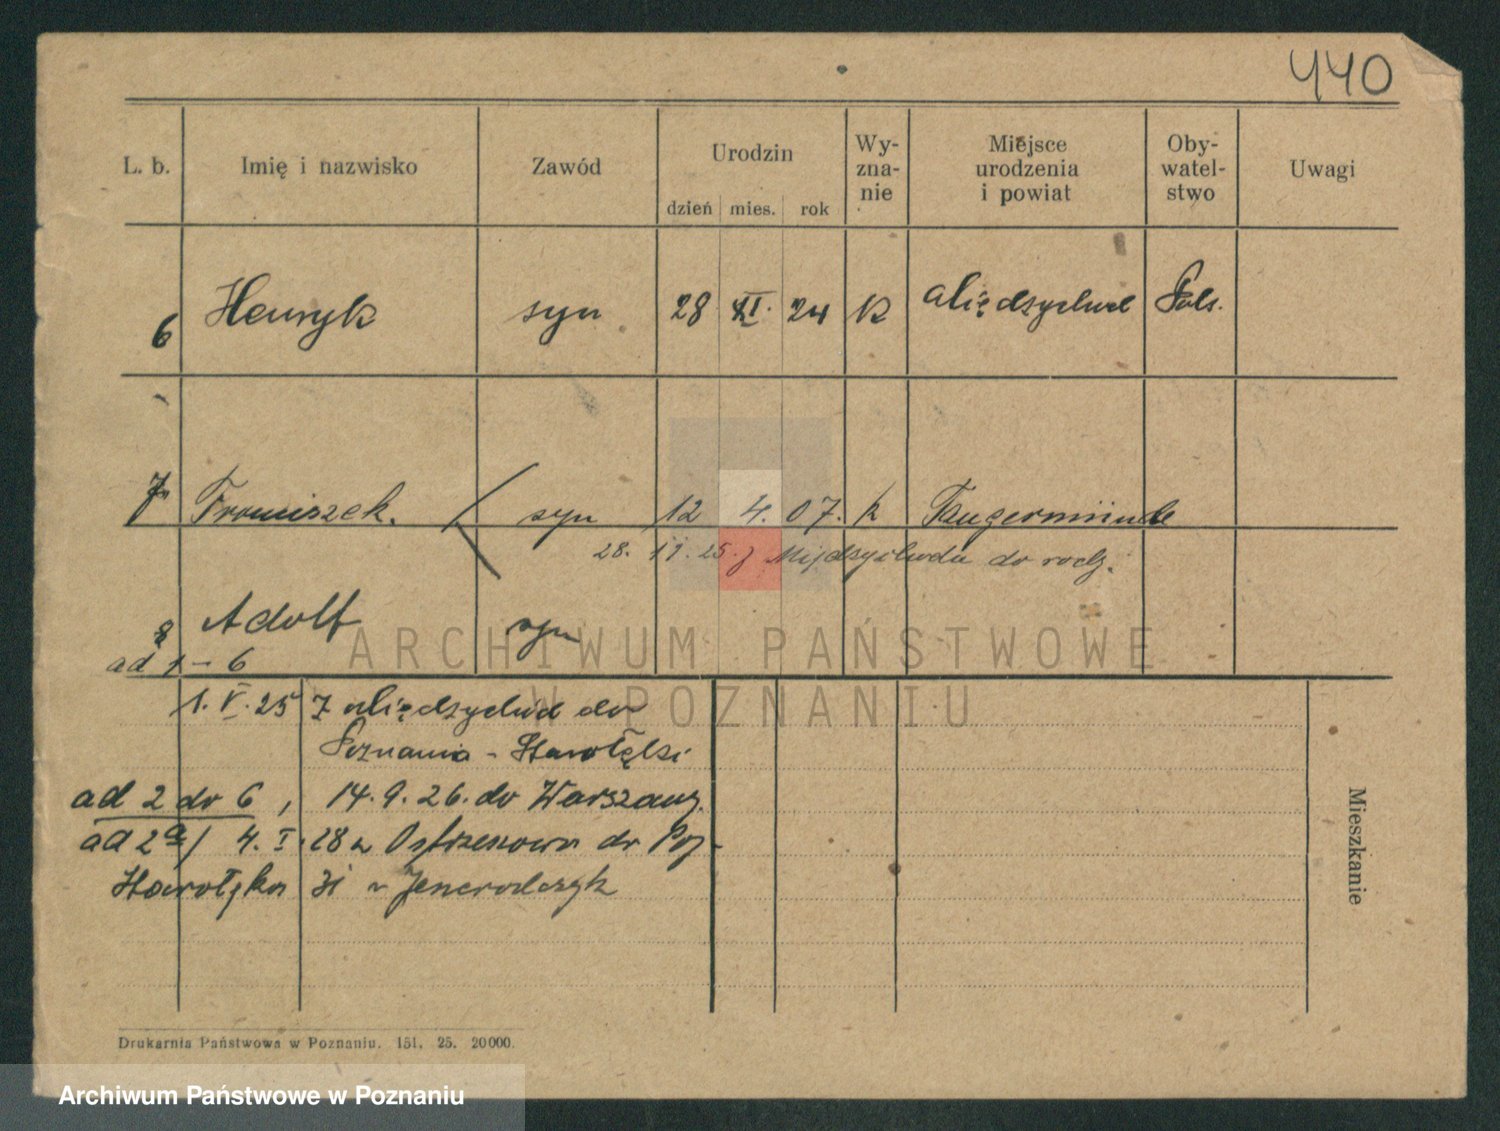 440
L. b. Imię i nazwisko Zawód Urodzin Wy-zna-nie Miejsce urodzenia i powiat Oby-watel-stwo Uwagi
dzień mies. rok
6 Henryk syn 28 XI. 24 K Międzychód Pols.
7 Franciszek. syn 12 4. 07. k Tangermünde
28. 25. z Międzychodu do rodz.
8 Adolf syn
ad 1 - 6
1. V. 25 Z Międzychód do
Poznania - Starołęki
ad 2 do 6, 14. 9. 26. do Warszawy.
ad 2a/ 4. I. 28 z Ostrzeszowa do Poz-
Starołęka 31
Mieszkanie
Drukarnia Państwowa w Poznaniu. 151. 25. 20000.
ARCHIWUM PAŃSTWOWE
W POZNANIU
Archiwum Państwowe w Poznaniu